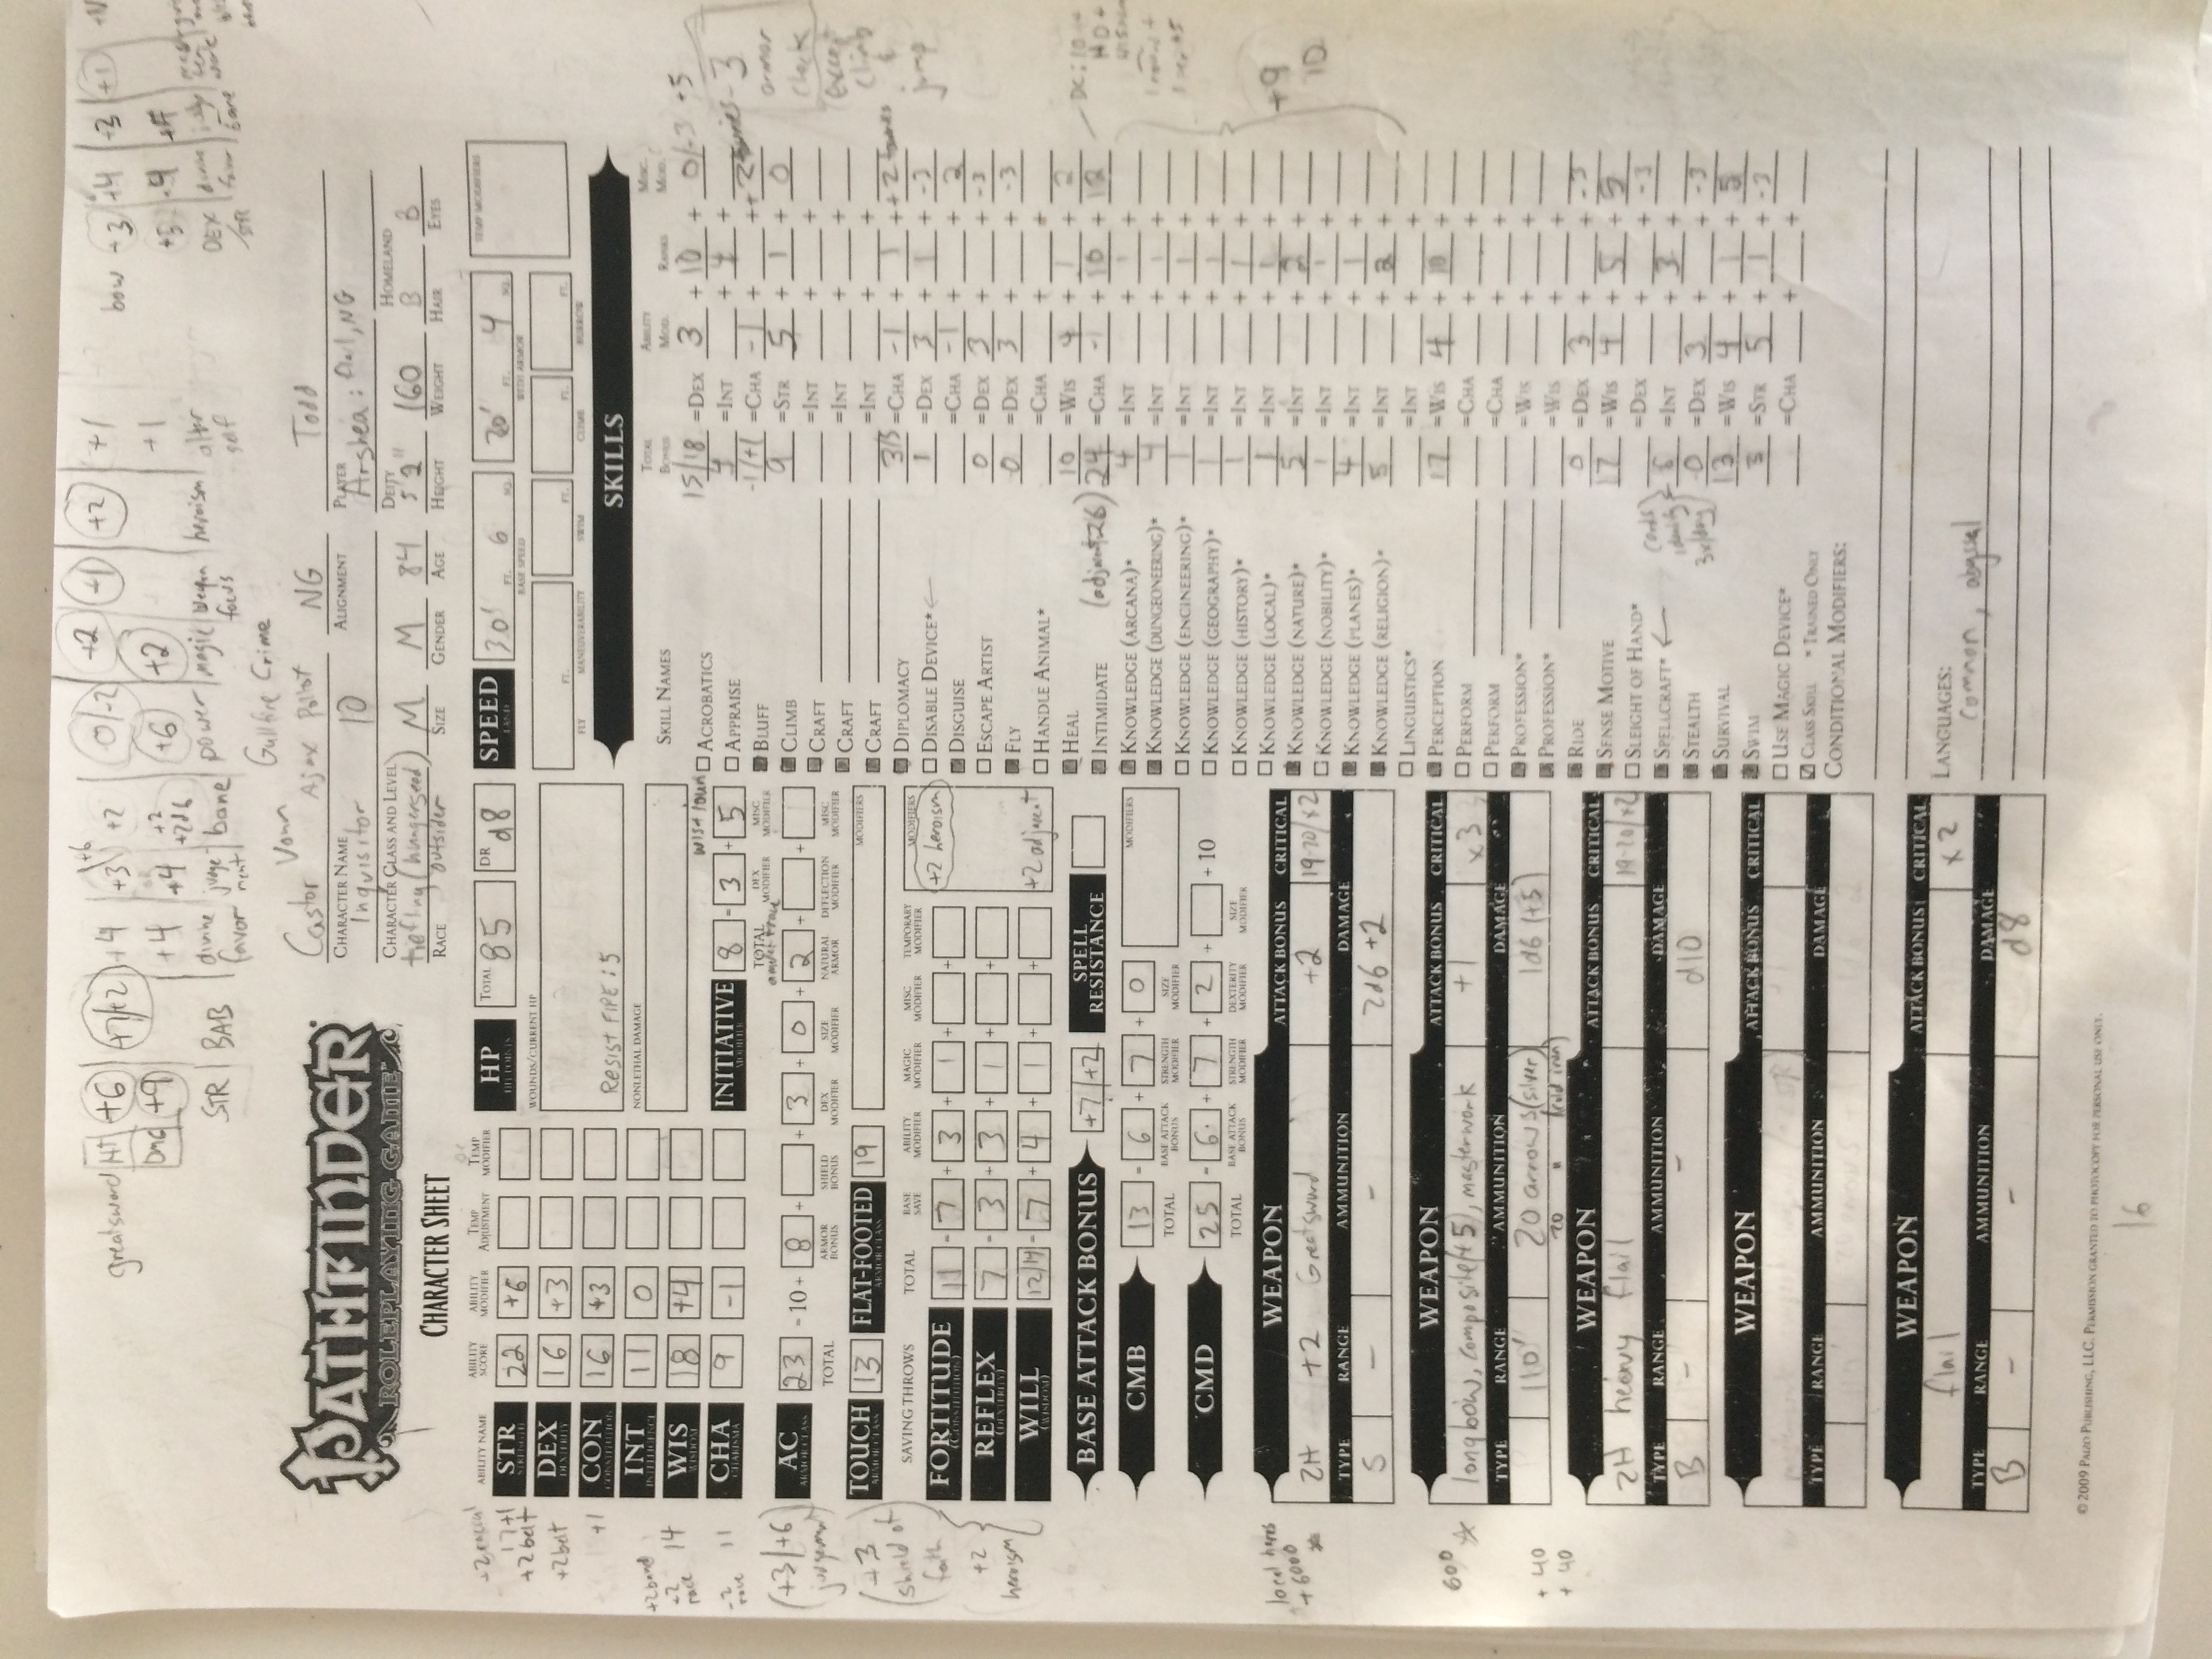 +6
greatsword Hit +6 +7/+2 +4 +3 +2 0/-2 +2 +1 +2 +1
bow +3 +4 +3 +1
Dmg +9 +4 +4 +2 +2d6 +6 +2 +1
STR BAB divine favor judgement bane power magic weapon focus heroism alter self
DEX /STR divine favor bane
Gullfire Crime
Castor Vonn Ajax Pollot NG Todd
CHARACTER NAME ALIGNMENT PLAYER
Inquisitor 10 Arshea: flail, NG
CHARACTER CLASS AND LEVEL DEITY HOMELAND
tiefling (hungerseed) M M 84 5'2" 160 B B
RACE outsider SIZE GENDER AGE HEIGHT WEIGHT HAIR EYES
PATHFINDER
ROLEPLAYING GAME
CHARACTER SHEET
ABILITY NAME ABILITY SCORE ABILITY MODIFIER TEMP ADJUSTMENT TEMP MODIFIER
+2 racial
17+1
+2 belt
STR STRENGTH 22 +6
+2 belt DEX DEXTERITY 16 +3
+1 CON CONSTITUTION 16 +3
INT INTELLIGENCE 11 0
+2 band
+2 race 14 WIS WISDOM 18 +4
-2 race 11 CHA CHARISMA 9 -1
HP HIT POINTS TOTAL 85 DR d8
WOUNDS/CURRENT HP
Resist FIRE: 5
NONLETHAL DAMAGE
INITIATIVE MODIFIER 8 = 3 + 5
TOTAL DEX MODIFIER MISC MODIFIER
SPEED LAND 30' FT. 6 SQ. 20' FT. 4 SQ.
BASE SPEED WITH ARMOR
TEMP MODIFIERS
FT. FT. FT. FT.
FLY MANEUVERABILITY SWIM CLIMB BURROW
(+3/+6 judgement)
AC ARMOR CLASS 23 = 10 + 8 + + 3 + 0 + 2 + +
TOTAL ARMOR BONUS SHIELD BONUS DEX MODIFIER SIZE MODIFIER NATURAL ARMOR DEFLECTION MODIFIER MISC MODIFIER
TOUCH ARMOR CLASS 13 FLAT-FOOTED ARMOR CLASS 19 MODIFIERS
(+3 shield of faith
+2 heroism
SAVING THROWS TOTAL BASE SAVE ABILITY MODIFIER MAGIC MODIFIER MISC MODIFIER TEMPORARY MODIFIER MODIFIERS
FORTITUDE (CONSTITUTION) 11 = 7 + 3 + 1 + + +2 heroism
REFLEX (DEXTERITY) 7 = 3 + 3 + 1 + +
WILL (WISDOM) 12/14 = 7 + 4 + 1 + + +2 adjacent
BASE ATTACK BONUS +7/+2 SPELL RESISTANCE
CMB 13 = 6 + 7 + 0 MODIFIERS
TOTAL BASE ATTACK BONUS STRENGTH MODIFIER SIZE MODIFIER
CMD 25 = 6 + 7 + 2 + + 10
TOTAL BASE ATTACK BONUS STRENGTH MODIFIER DEXTERITY MODIFIER SIZE MODIFIER
local heros
+6000
WEAPON ATTACK BONUS CRITICAL
2H +2 Greatsword +2 19-20/x2
TYPE RANGE AMMUNITION DAMAGE
S - - 2d6 +2
600
WEAPON ATTACK BONUS CRITICAL
longbow, composite(+5), masterwork +1 x3
TYPE RANGE AMMUNITION DAMAGE
110' 20 arrows (silver) 1d6 (+5)
20 " (cold iron)
+40
+40
WEAPON ATTACK BONUS CRITICAL
2H heavy flail 19-20/x2
TYPE RANGE AMMUNITION DAMAGE
B - - d10
WEAPON ATTACK BONUS CRITICAL
TYPE RANGE AMMUNITION DAMAGE
WEAPON ATTACK BONUS CRITICAL
flail x2
TYPE RANGE AMMUNITION DAMAGE
B - - d8
SKILLS
SKILL NAMES TOTAL BONUS ABILITY MOD. RANKS MISC. MOD.
ACROBATICS 15/18 =DEX 3 + 10 + 0/-3 +5
APPRAISE =INT + +
BLUFF -1/+1 =CHA -1 + ++2
CLIMB 9 =STR 5 + 1 + 0
CRAFT =INT + +
CRAFT =INT + +
CRAFT =INT + +
DIPLOMACY 3/5 =CHA -1 + 1 ++2
DISABLE DEVICE* 1 =DEX 3 + 1 + -3
DISGUISE =CHA -1 + + 2
ESCAPE ARTIST 0 =DEX 3 + + -3
FLY 0 =DEX 3 + + -3
HANDLE ANIMAL* =CHA + +
HEAL 10 =WIS 4 + 1 + 2
INTIMIDATE (adjacent 26) 24 =CHA -1 + 10 + 12
KNOWLEDGE (ARCANA)* 4 =INT + 1 +
KNOWLEDGE (DUNGEONEERING)* 4 =INT + 1 +
KNOWLEDGE (ENGINEERING)* 1 =INT + 1 +
KNOWLEDGE (GEOGRAPHY)* 1 =INT + 1 +
KNOWLEDGE (HISTORY)* 1 =INT + 1 +
KNOWLEDGE (LOCAL)* 1 =INT + 1 +
KNOWLEDGE (NATURE)* 5 =INT + 2 +
KNOWLEDGE (NOBILITY)* 1 =INT + 1 +
KNOWLEDGE (PLANES)* 4 =INT + 1 +
KNOWLEDGE (RELIGION)* 5 =INT + 2 +
LINGUISTICS* =INT + +
PERCEPTION 17 =WIS 4 + 10 +
PERFORM =CHA + +
PERFORM =CHA + +
PROFESSION* =WIS + +
PROFESSION* =WIS + +
RIDE 0 =DEX 3 + + -3
SENSE MOTIVE 17 =WIS 4 + 5 + 5
SLEIGHT OF HAND* =DEX + + -3
SPELLCRAFT* 6 =INT + 3 +
STEALTH 0 =DEX 3 + + -3
SURVIVAL 13 =WIS 4 + 1 + 5
SWIM 3 =STR 5 + 1 + -3
USE MAGIC DEVICE* =CHA + +
CLASS SKILL * TRAINED ONLY
-3 armor check except climb & jump
DC: 10 + HD +
+9
10
cards identify 3x/day
CONDITIONAL MODIFIERS:
LANGUAGES:
common, abyssal
© 2009 PAIZO PUBLISHING, LLC. PERMISSION GRANTED TO PHOTOCOPY FOR PERSONAL USE ONLY.
16